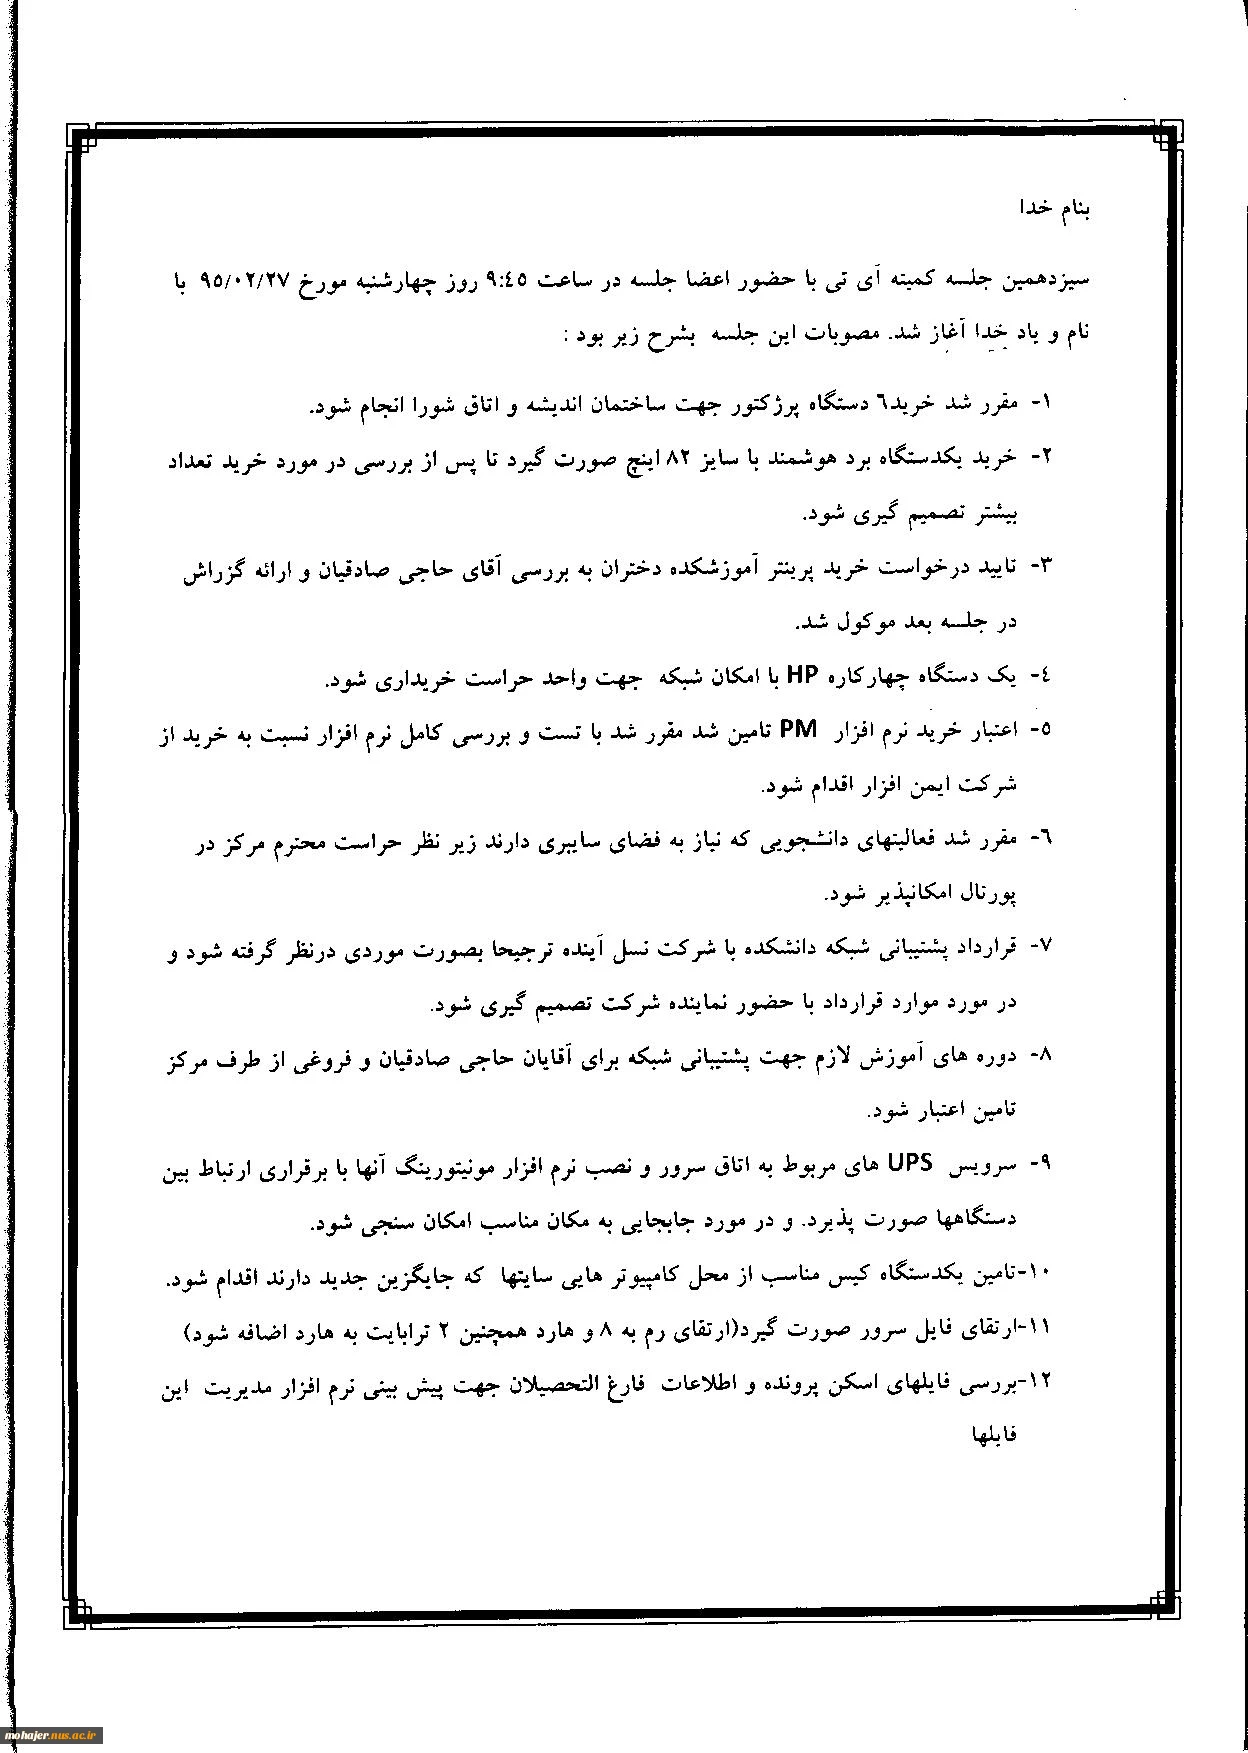 بنام خدا
سیزدهمین جلسه کمیته آی تی با حضور اعضا جلسه در ساعت ۹:٤٥ روز چهارشنبه مورخ ۹٥/۰۲/۲۷ با
نام و یاد خدا آغاز شد. مصوبات این جلسه بشرح زیر بود :
۱- مقرر شد خرید٦ دستگاه پرژکتور جهت ساختمان اندیشه و اتاق شورا انجام شود.
۲- خرید یکدستگاه برد هوشمند با سایز ۸۲ اینچ صورت گیرد تا پس از بررسی در مورد خرید تعداد
بیشتر تصمیم گیری شود.
۳- تایید درخواست خرید پرینتر آموزشکده دختران به بررسی آقای حاجی صادقیان و ارائه گزارش
در جلسه بعد موکول شد.
٤- یک دستگاه چهارکاره HP با امکان شبکه جهت واحد حراست خریداری شود.
٥- اعتبار خرید نرم افزار PM تامین شد مقرر شد با تست و بررسی کامل نرم افزار نسبت به خرید از
شرکت ایمن افزار اقدام شود.
٦- مقرر شد فعالیتهای دانشجویی که نیاز به فضای سایبری دارند زیر نظر حراست محترم مرکز در
پورتال امکانپذیر شود.
۷- قرارداد پشتیبانی شبکه دانشکده با شرکت نسل آینده ترجیحا بصورت موردی درنظر گرفته شود و
در مورد موارد قرارداد با حضور نماینده شرکت تصمیم گیری شود.
۸- دوره های آموزش لازم جهت پشتیبانی شبکه برای آقایان حاجی صادقیان و فروغی از طرف مرکز
تامین اعتبار شود.
۹- سرویس UPS های مربوط به اتاق سرور و نصب نرم افزار مونیتورینگ آنها با برقراری ارتباط بین
دستگاهها صورت پذیرد. و در مورد جابجایی به مکان مناسب امکان سنجی شود.
۱۰-تامین یکدستگاه کیس مناسب از محل کامپیوتر هایی سایتها که جایگزین جدید دارند اقدام شود.
۱۱-ارتقای فایل سرور صورت گیرد(ارتقای رم به ۸ و هارد همچنین ۲ ترابایت به هارد اضافه شود)
۱۲-بررسی فایلهای اسکن پرونده و اطلاعات فارغ التحصیلان جهت پیش بینی نرم افزار مدیریت این
فایلها
mohajer.nus.ac.ir